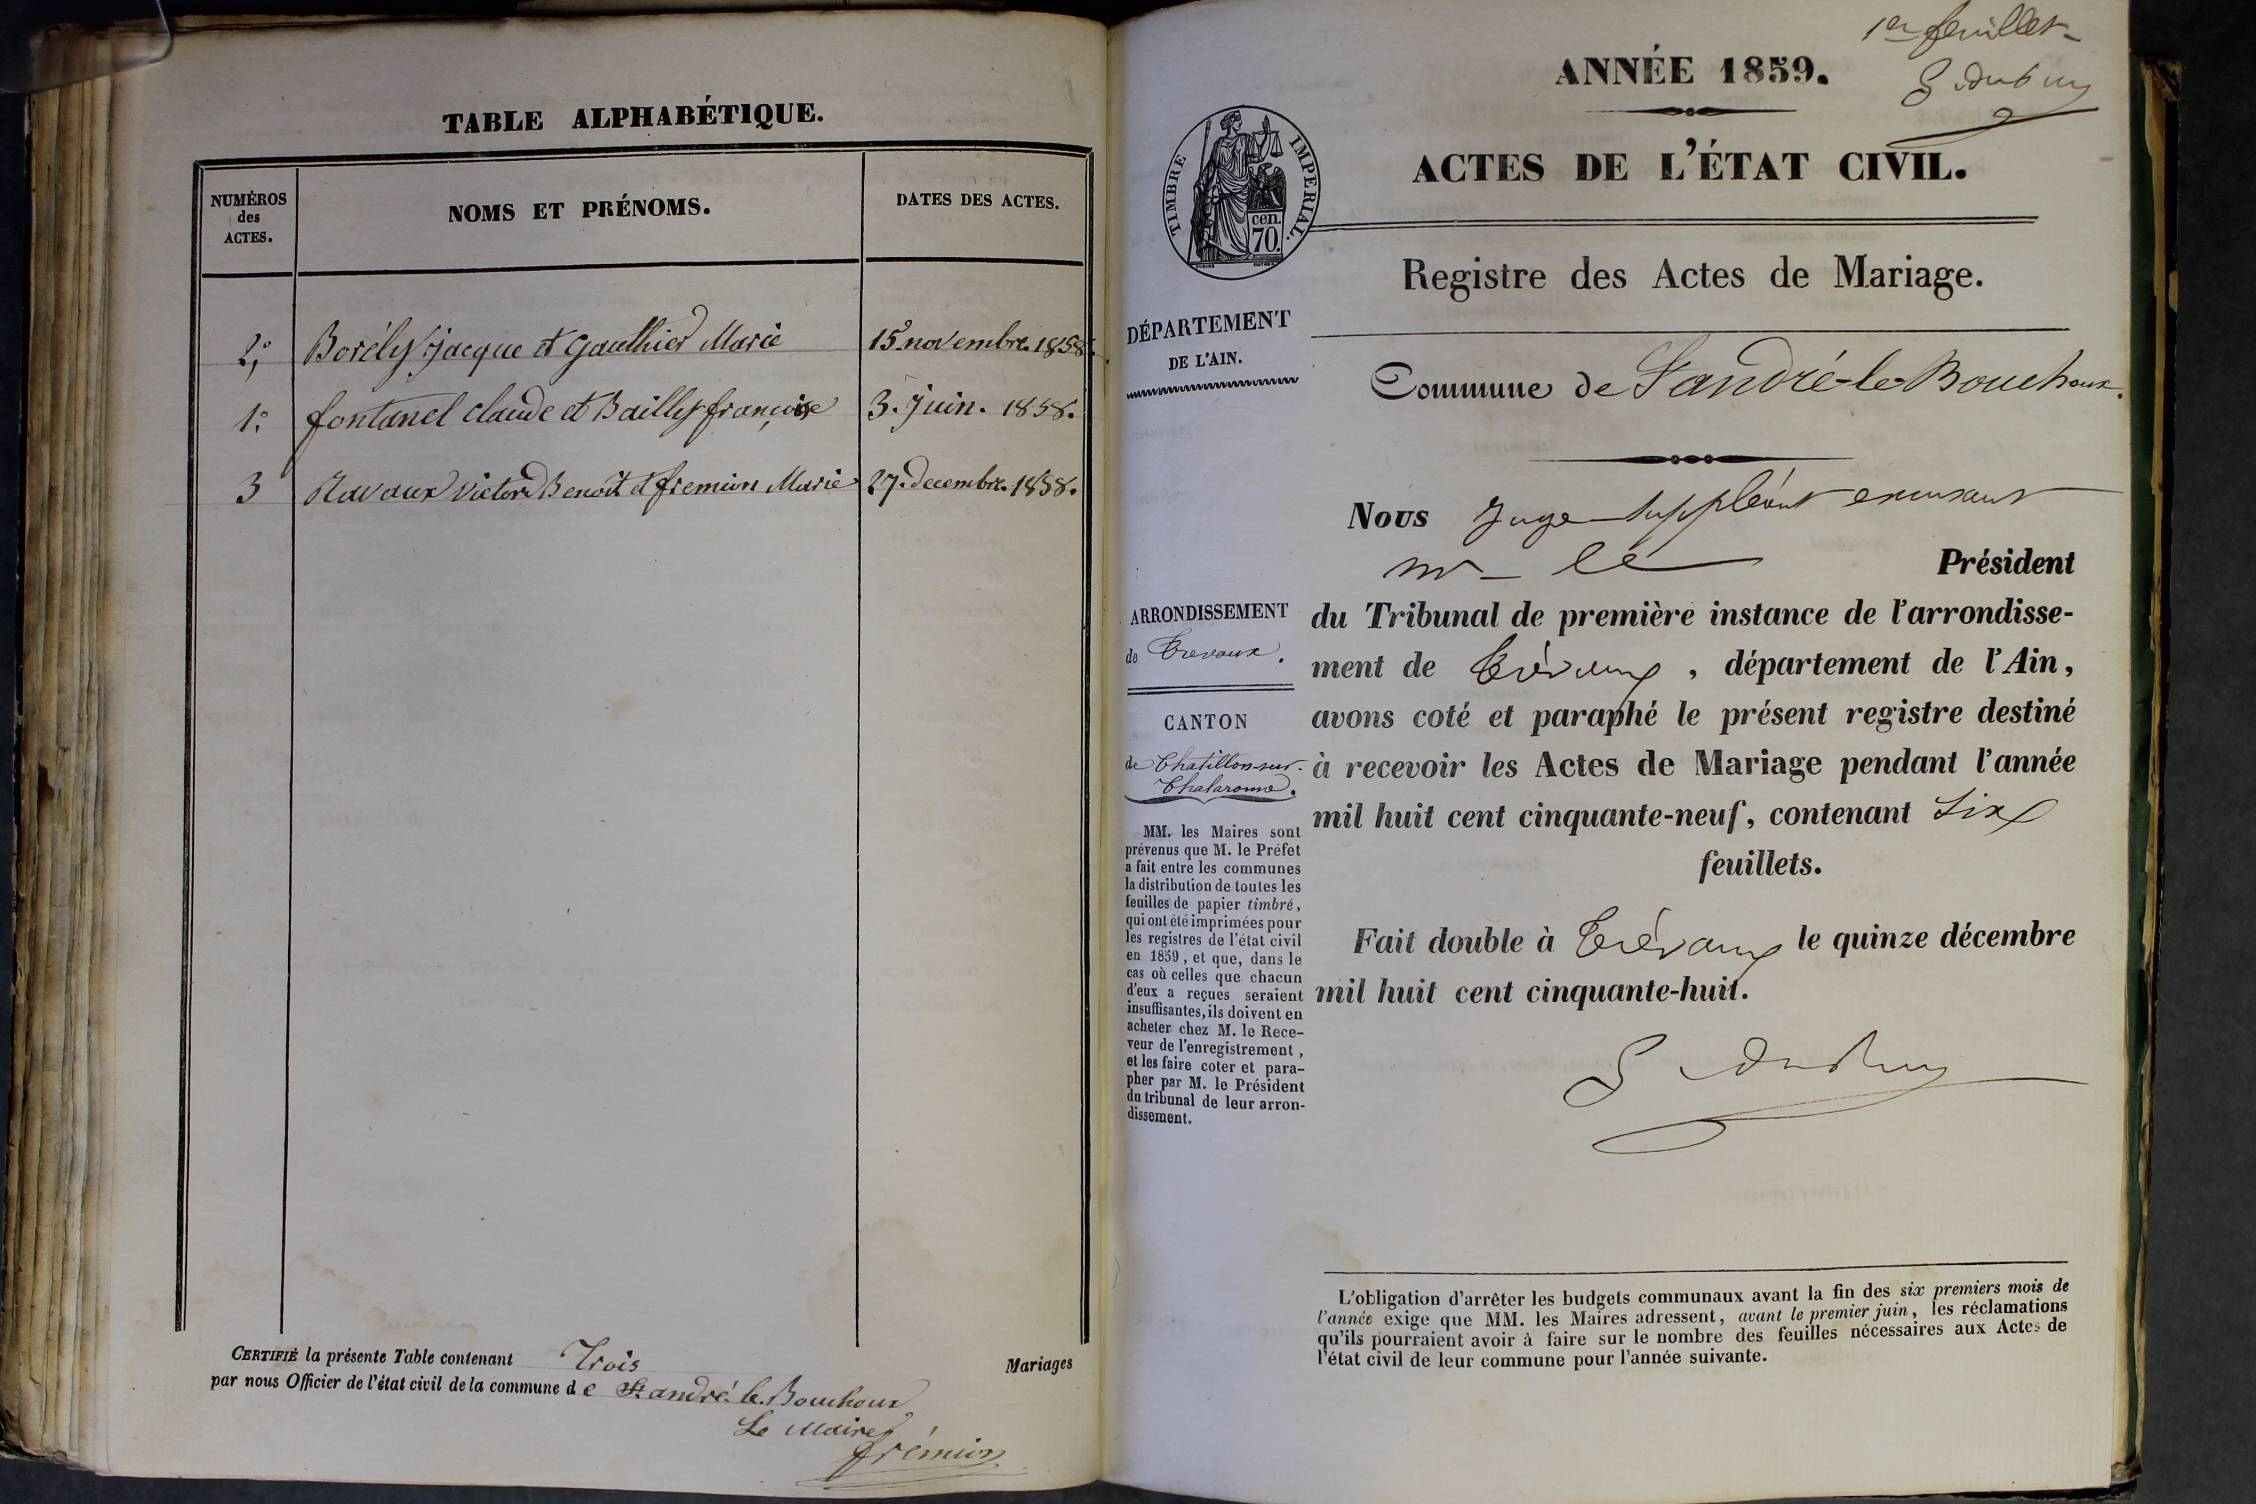 TABLE ALPHABÉTIQUE.
NUMÉROS des ACTES.
NOMS ET PRÉNOMS.
DATES DES ACTES.
2° Borély Jacque et Gauthier Marie 15 novembre 1858.
1° fontanel claude et Bailly françoise 3. juin. 1858.
3 Ravaux victor Benoit et fremion Marie 27. decembre. 1858.
CERTIFIÉ la présente Table contenant Trois Mariages
par nous Officier de l'état civil de la commune de St. andré. le. Bouchoux
Le Maire
frémion
1er feuillet
ANNÉE 1859.
ACTES DE L'ÉTAT CIVIL.
TIMBRE IMPERIAL.
cen.
70.
Registre des Actes de Mariage.
DÉPARTEMENT
DE L'AIN.
Commune de St andré-le-Bouchoux.
Nous Juge suppléant
mr le Président
ARRONDISSEMENT
de Trevoux.
du Tribunal de première instance de l'arrondisse-
ment de Trévoux, département de l'Ain,
CANTON
de Chatillon-sur-
Chalaronne.
avons coté et paraphé le présent registre destiné
à recevoir les Actes de Mariage pendant l'année
mil huit cent cinquante-neuf, contenant six
feuillets.
Fait double à Trévoux le quinze décembre
mil huit cent cinquante-huit.
MM. les Maires sont
prévenus que M. le Préfet
a fait entre les communes
la distribution de toutes les
feuilles de papier timbré,
qui ont été imprimées pour
les registres de l'état civil
en 1859, et que, dans le
cas où celles que chacun
d'eux a reçues seraient
insuffisantes, ils doivent en
acheter chez M. le Rece-
veur de l'enregistrement,
et les faire coter et para-
pher par M. le Président
du tribunal de leur arron-
dissement.
L'obligation d'arrêter les budgets communaux avant la fin des six premiers mois de
l'année exige que MM. les Maires adressent, avant le premier juin, les réclamations
qu'ils pourraient avoir à faire sur le nombre des feuilles nécessaires aux Actes de
l'état civil de leur commune pour l'année suivante.